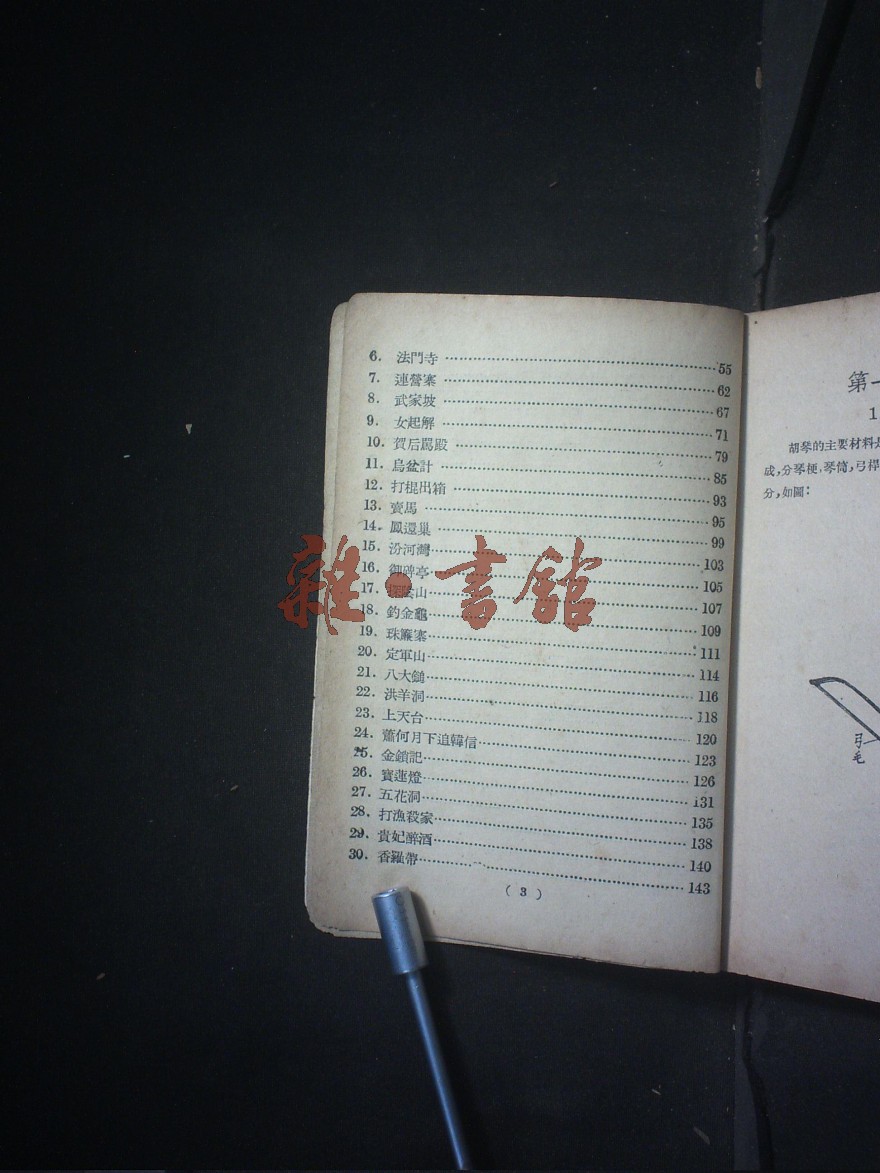 6. 法門寺 55
7. 連營寨 62
8. 武家坡 67
9. 女起解 71
10. 賀后罵殿 79
11. 烏盆計 85
12. 打棍出箱 93
13. 賣馬 95
14. 鳳還巢 99
15. 汾河灣 103
16. 御碑亭 105
17. 探陰山 107
18. 釣金龜 109
19. 珠簾寨 111
20. 定軍山 114
21. 八大鎚 116
22. 洪羊洞 118
23. 上天台 120
24. 蕭何月下追韓信 123
25. 金鎖記 126
26. 寶蓮燈 131
27. 五花洞 135
28. 打漁殺家 138
29. 貴妃醉酒 140
30. 香羅帶 143
( 3 )
雜·書館
第一
1
胡琴的主要材料是
成,分琴梗,琴筒,弓桿
分,如圖:
弓毛